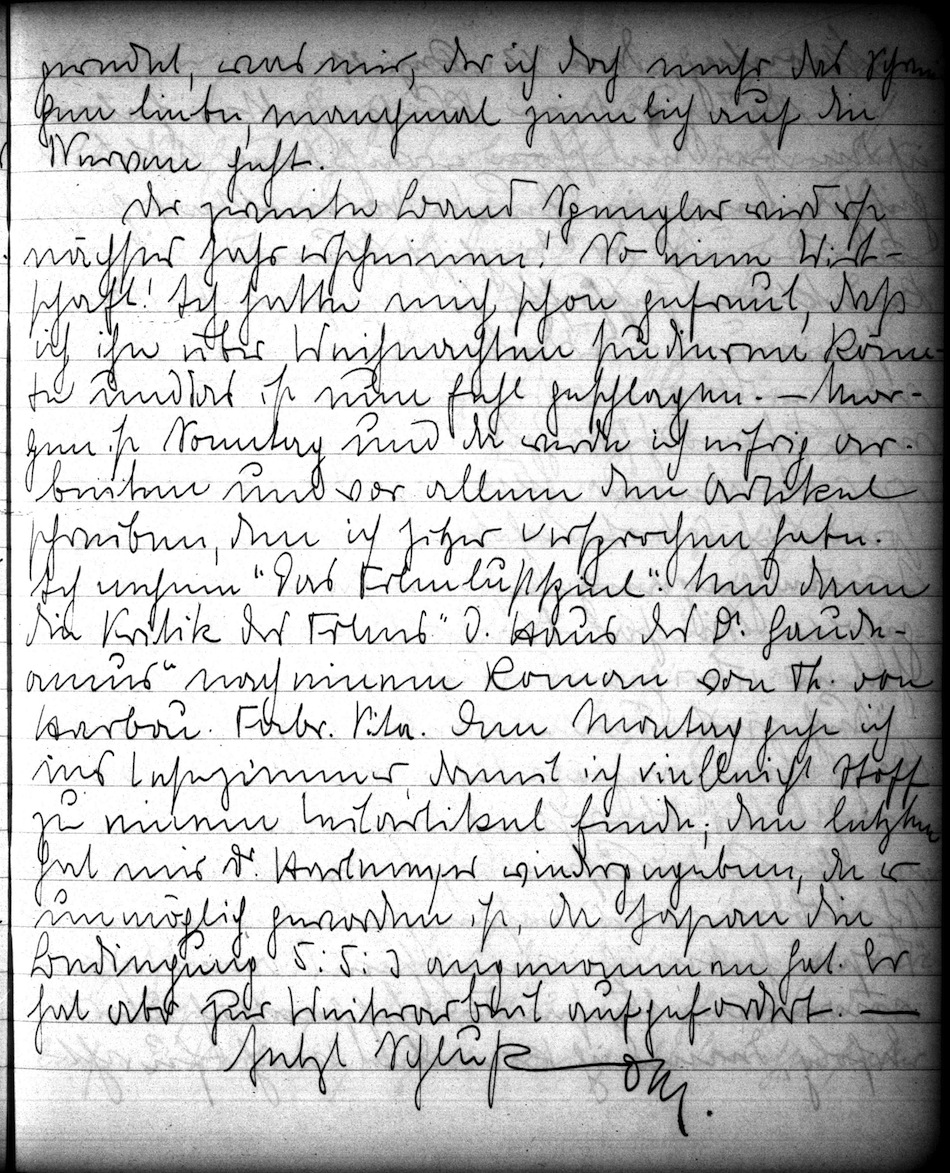 geredet, was mir, der ich doch mehr das Schwei-
gen liebe, manchmal ziemlich auf die
Nerven geht.
Der zweite Band Spengler wird erst
nächstes Jahr erscheinen! So eine Wirt-
schaft! Ich hatte mich schon gefreut, dass
ich ihn über Weihnachten studieren könn-
te und das ist nun fehl geschlagen. – Mor-
gen ist Sonntag und da werde ich eifrig ar-
beiten und vor allem den Artikel
schreiben, den ich versprochen habe.
Ich nehme "Das Filmlustspiel". Und dann
die Kritik des Films "D. Haus des Dr. Gaude-
amus" nach einem Roman von Th. von
Harbou. Fabr. Vita. Den Montag gehe ich
ins Lesezimmer, damit ich vielleicht Stoff
zu einem Leitartikel finde; den letzten
hat mir Dr. wiedergegeben, da er
unmöglich geworden ist, da Japan die
Bedingung 5:5:3 angenommen hat. Er
hat aber zur Weiterarbeit aufgefordert. —
Jetzt Schluß